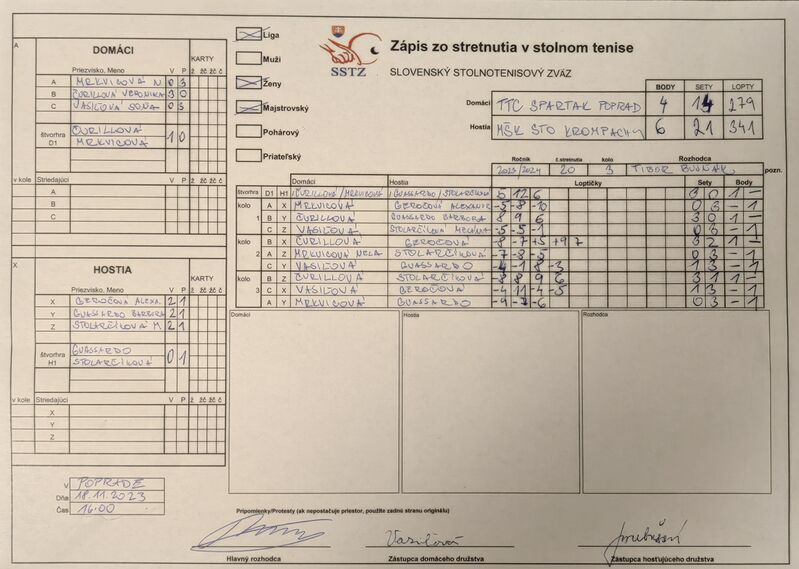 Liga
Muži
Ženy
Majstrovský
Pohárový
Priateľský
SSTZ
Zápis zo stretnutia v stolnom tenise
SLOVENSKÝ STOLNOTENISOVÝ ZVÄZ
BODY SETY LOPTY
Domáci TTC SPARTAK POPRAD 4 14 279
Hostia MŠK STO KROMPACHY 6 21 341
Ročník č.stretnutia kolo Rozhodca
2023/2024 20 3 TIBOR pozn.
A
DOMÁCI
KARTY
Priezvisko, Meno V P ž žč žč č
A MRKVICOVÁ N 0 3
B ČURILLOVÁ VERONIKA 3 0
C VASIĽOVÁ SOŇA 0 3
štvorhra D1 ČURILLOVÁ 1 0
MRKVICOVÁ
v kole Striedajúci V P ž žč žč č
A
B
C
X
HOSTIA
KARTY
Priezvisko, Meno V P ž žč žč č
X GEROČOVÁ ALEXA. 2 1
Y GUASSARDO BARBORA 2 1
Z STOLARČIKOVÁ M. 2 1
štvorhra H1 GUASSARDO 0 1
STOLARČIKOVÁ
v kole Striedajúci V P ž žč žč č
X
Y
Z
V POPRADE
Dňa 18.11.2023
Čas 16:00
Domáci Hostia Loptičky Sety Body
štvorhra D1 H1 ČURILLOVÁ/MRKVICOVÁ GUASSARDO/STOLARČIKOVÁ 5 12 6 3 0 1 -
kolo A X MRKVICOVÁ GEROČOVÁ ALEXANDR -5 -8 -10 0 3 - 1
1 B Y ČURILLOVÁ GUASSARDO BARBORA 8 9 6 3 0 1 -
C Z VASIĽOVÁ STOLARČIKOVÁ -5 -5 -1 0 3 - 1
kolo B X ČURILLOVÁ GEROČOVÁ -8 -7 +5 +9 7 3 2 1 -
2 A Z MRKVICOVÁ NELA STOLARČIKOVÁ -7 -8 -5 0 3 - 1
C Y VASIĽOVÁ GUASSARDO -4 -1 8 -3 1 3 - 1
kolo B Z ČURILLOVÁ STOLARČIKOVÁ -8 8 9 6 3 1 1 -
3 C X VASIĽOVÁ GEROČOVÁ -4 11 -4 -5 1 3 - 1
A Y MRKVICOVÁ GUASSARDO -9 -7 -6 0 3 - 1
Domáci Hostia Rozhodca
Pripomienky/Protesty (ak nepostačuje priestor, použite zadnú stranu originálu)
Vasiľová
Hlavný rozhodca Zástupca domáceho družstva Zástupca hosťujúceho družstva